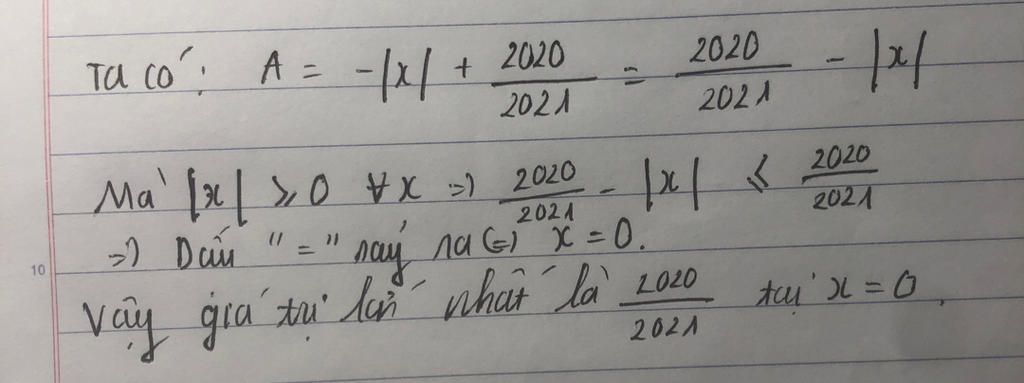 Ta có: A = -|x| + 2020/2021 = 2020/2021 - |x|
Mà |x| ≥ 0 ∀x => 2020/2021 - |x| ≤ 2020/2021
=> Dấu "=" xảy ra <=> x = 0.
10
Vậy giá trị lớn nhất là 2020/2021 tại x = 0.